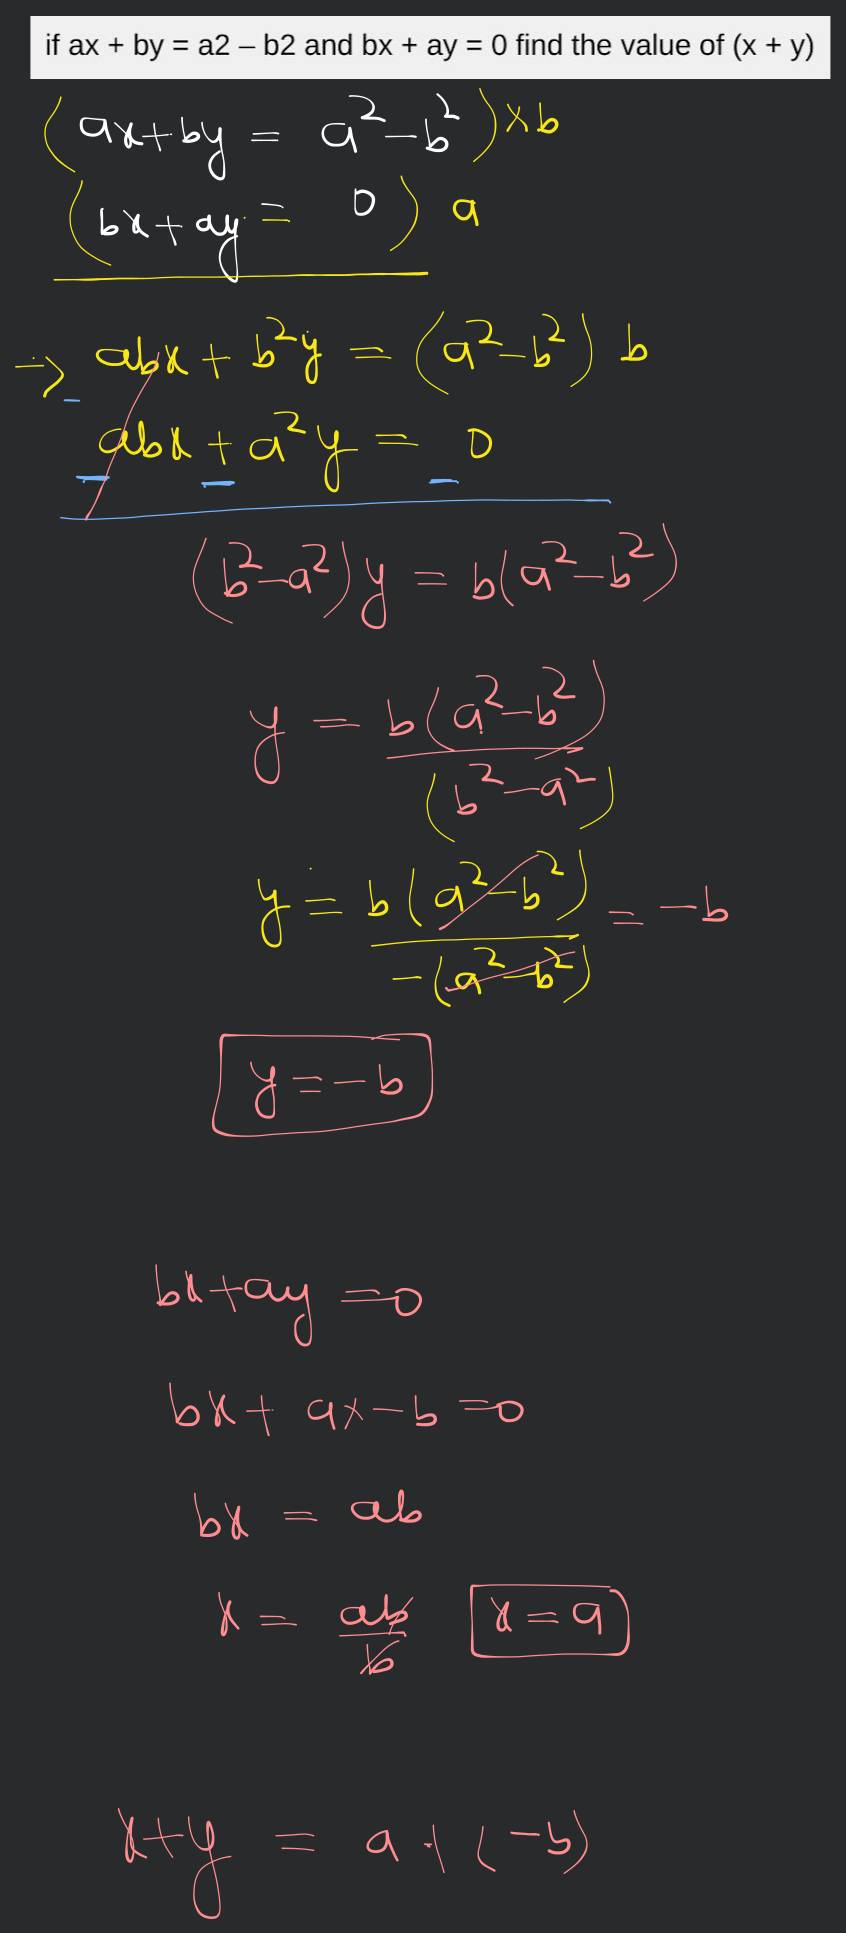 if ax + by = a2 – b2 and bx + ay = 0 find the value of (x + y)
(ax+by = a²-b²)×b
(bx+ay = 0) a
-> abx + b²y = (a²-b²) b
abx + a²y = 0
(b²-a²)y = b(a²-b²)
y = b(a²-b²)
(b²-a²)
y = b(a²-b²) = -b
-(a²-b²)
y = -b
bx+ay =0
bx+ ax-b =0
bx = ab
x = ab x = a
b
x+y = a + (-b)